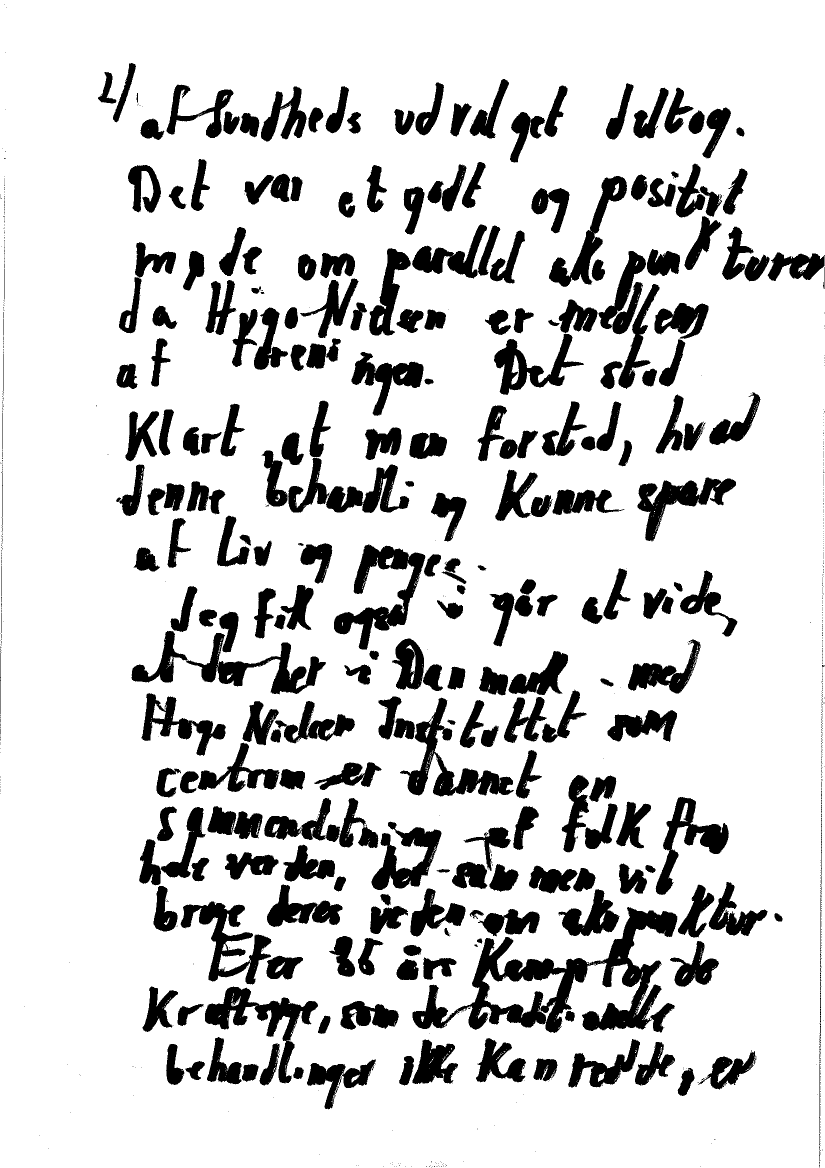 2/ af Sundheds udvalget deltog.
Det var et godt og positivt
møde om parallel akupunkturen
da Hugo Nielsen er medlem
af foreningen. Det stod
Klart, at man forstod, hvad
denne behandling Kunne spare
af liv og penge.
Jeg fik også i går at vide,
at der her i Danmark - med
Hugo Nielsen Instituttet som
centrum er dannet en
sammenslutning af folk fra
hele verden, der sammen vil
bruge deres viden om akupunktur.
Efter 36 års Kamp for de
Kraftsyge, som de traditionelle
behandlinger ikke Kan redde, er